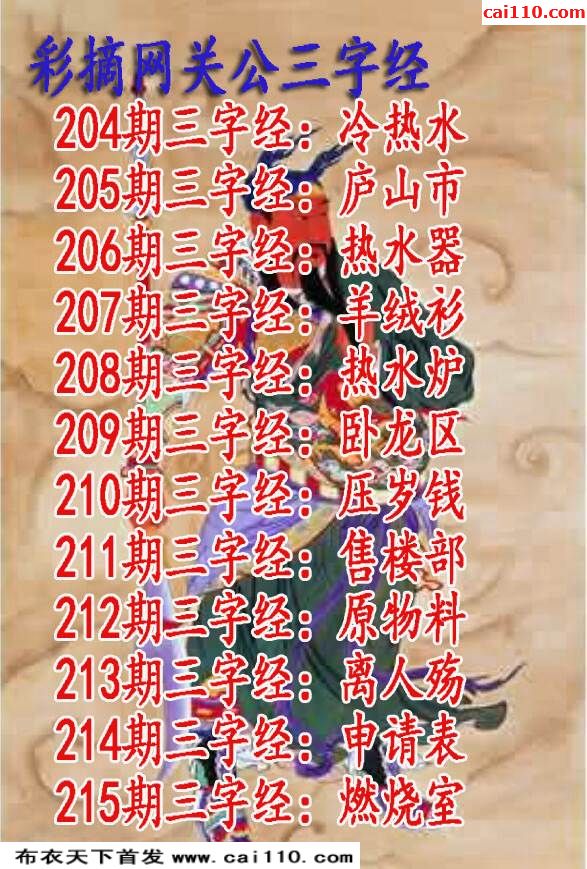 cai110.com
彩摘网关公三字经
204期三字经：冷热水
205期三字经：庐山市
206期三字经：热水器
207期三字经：羊绒衫
208期三字经：热水炉
209期三字经：卧龙区
210期三字经：压岁钱
211期三字经：售楼部
212期三字经：原物料
213期三字经：离人殇
214期三字经：申请表
215期三字经：燃烧室
布衣天下首发 www.cai110.com